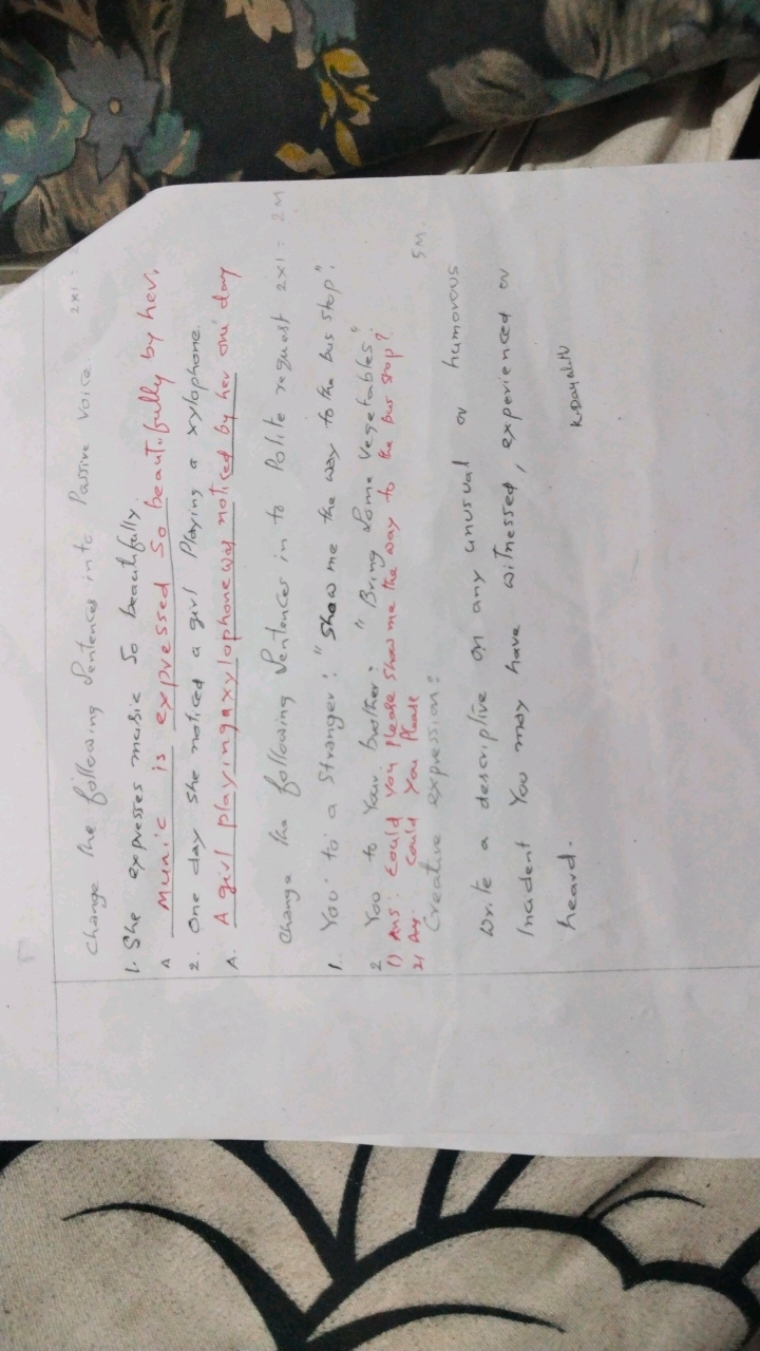 Change the following Sentences into Passive Voice. 2x1 =
1. She expresses music So beautifully.
A Music is expressed So beautifully by her.
2. One day she noticed a girl Playing a xylophone.
A. A girl playing a xylophone was noticed by her one day
Change the following Sentences in to Polite request 2x1 = 2M
1. You to a Stranger: "Show me the way to the bus stop".
2 You to Your brother: "Bring Some Vegetables"
1) Ans: Could you Please show me the way to the bus stop?
2) Ans: Could You Please
Creative expression: 5M.
Write a descriptive on any unusual or humorous
Incident You may have witnessed, experienced or
heard.